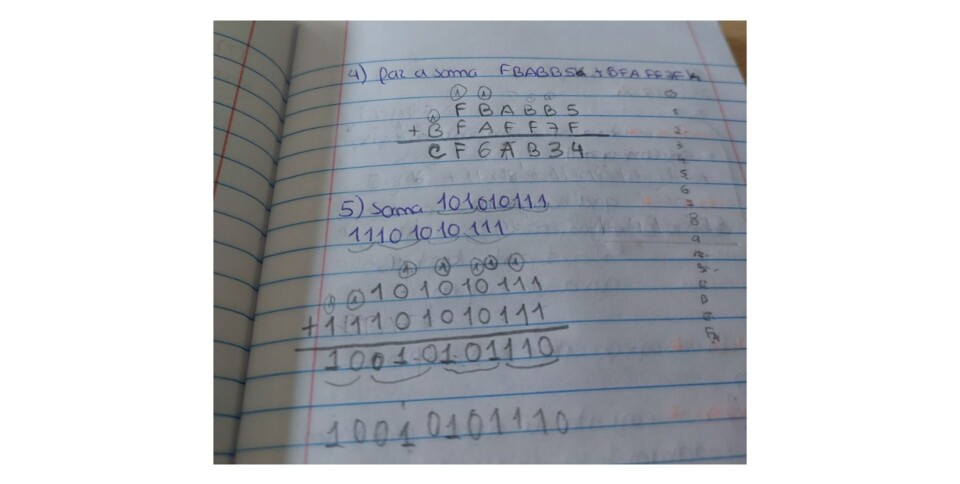 4) faz a soma FBABB5 + BFAFF7F
1 1
F B A B B 5
1
+ B F A F F 7 F
C F 6 A B 3 4
5) soma 101010111
11101010111
1 1 1 1 1
1 1 101010111
+11101010111
10010101110
10010101110
0
1
2
3
4
5
6
7
8
9